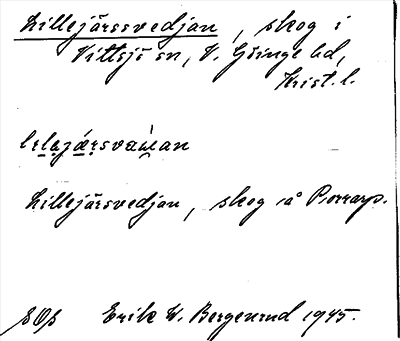 Lillejärssvedjan, skog i
Vittsjö sn, V. Göinge hd,
Krist. l.
Lillejärsvedjan, skog på Porrarp.
SOS Erik W. Bergenrud 1945.